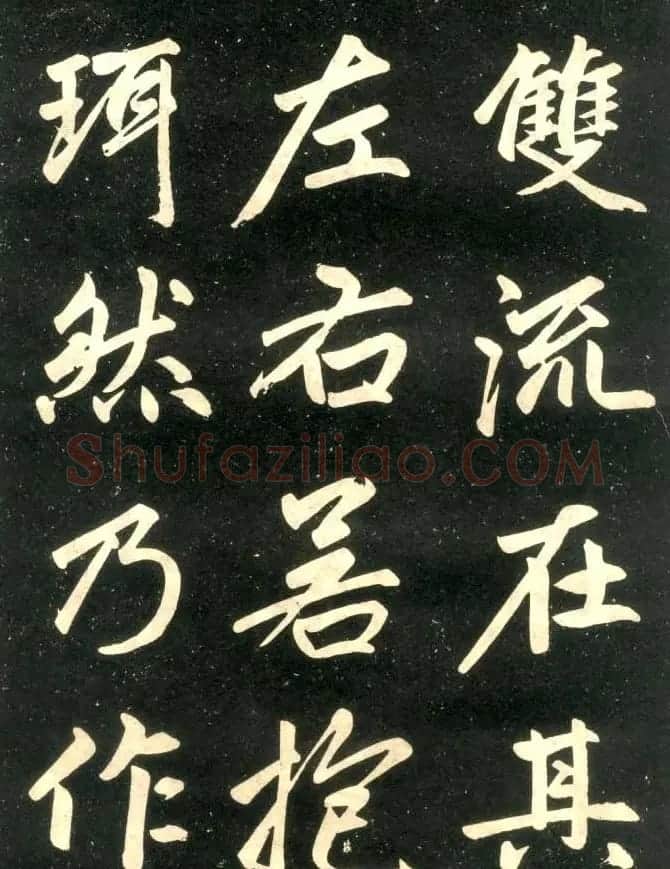 雙流在其
左右若抱
珥然乃作
Shufaziliao.COM